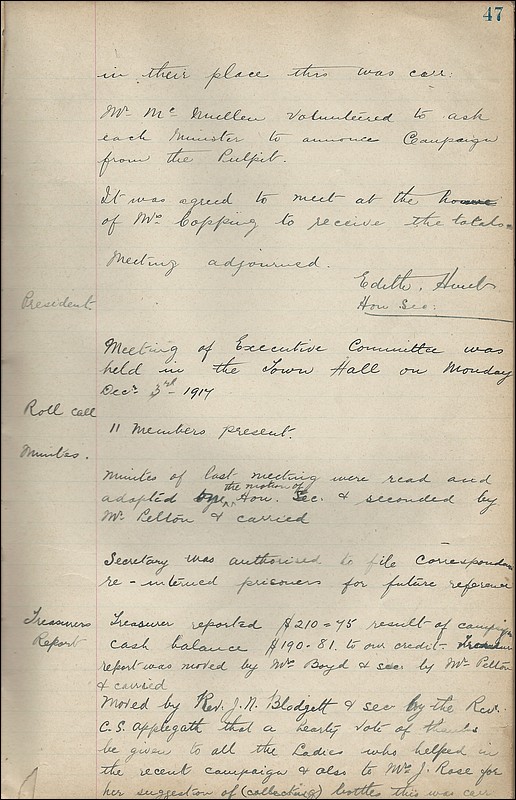 47
in their place this was carr:
Mr. Mc Mullen volunteered to ask
each Minister to annonce Campaign
from the Pulpit.
It was agreed to meet at the home
of Mrs Copping to receive the totals
Meeting adjourned.
Edith
Hon Sec:
President
Meeting of Executive Committee was
held in the Town Hall on Monday
Decr 3rd - 1917
Roll call
11 Members present.
Minutes.
Minutes of last meeting were read and
adopted by the motion of Hon. Sec. & seconded by
Mr Pelton & carried
Secretary was authorised to file correspondence
re-interned prisoners for future reference
Treasurers Treasurer reported $210=75 result of campaign
Report cash balance $190-81. to our credit. Treasurer
report was moved by Mrs Boyd & sec. by Mr Pelton
& carried
Moved by Rev. J. N. Blodgett & sec by the Rev.
C. S. Applegath that a hearty vote of thanks
be given to all the Ladies who helped in
the recent campaign & also to Mrs J. Rose for
her suggestion of (collecting) bottles this was carr